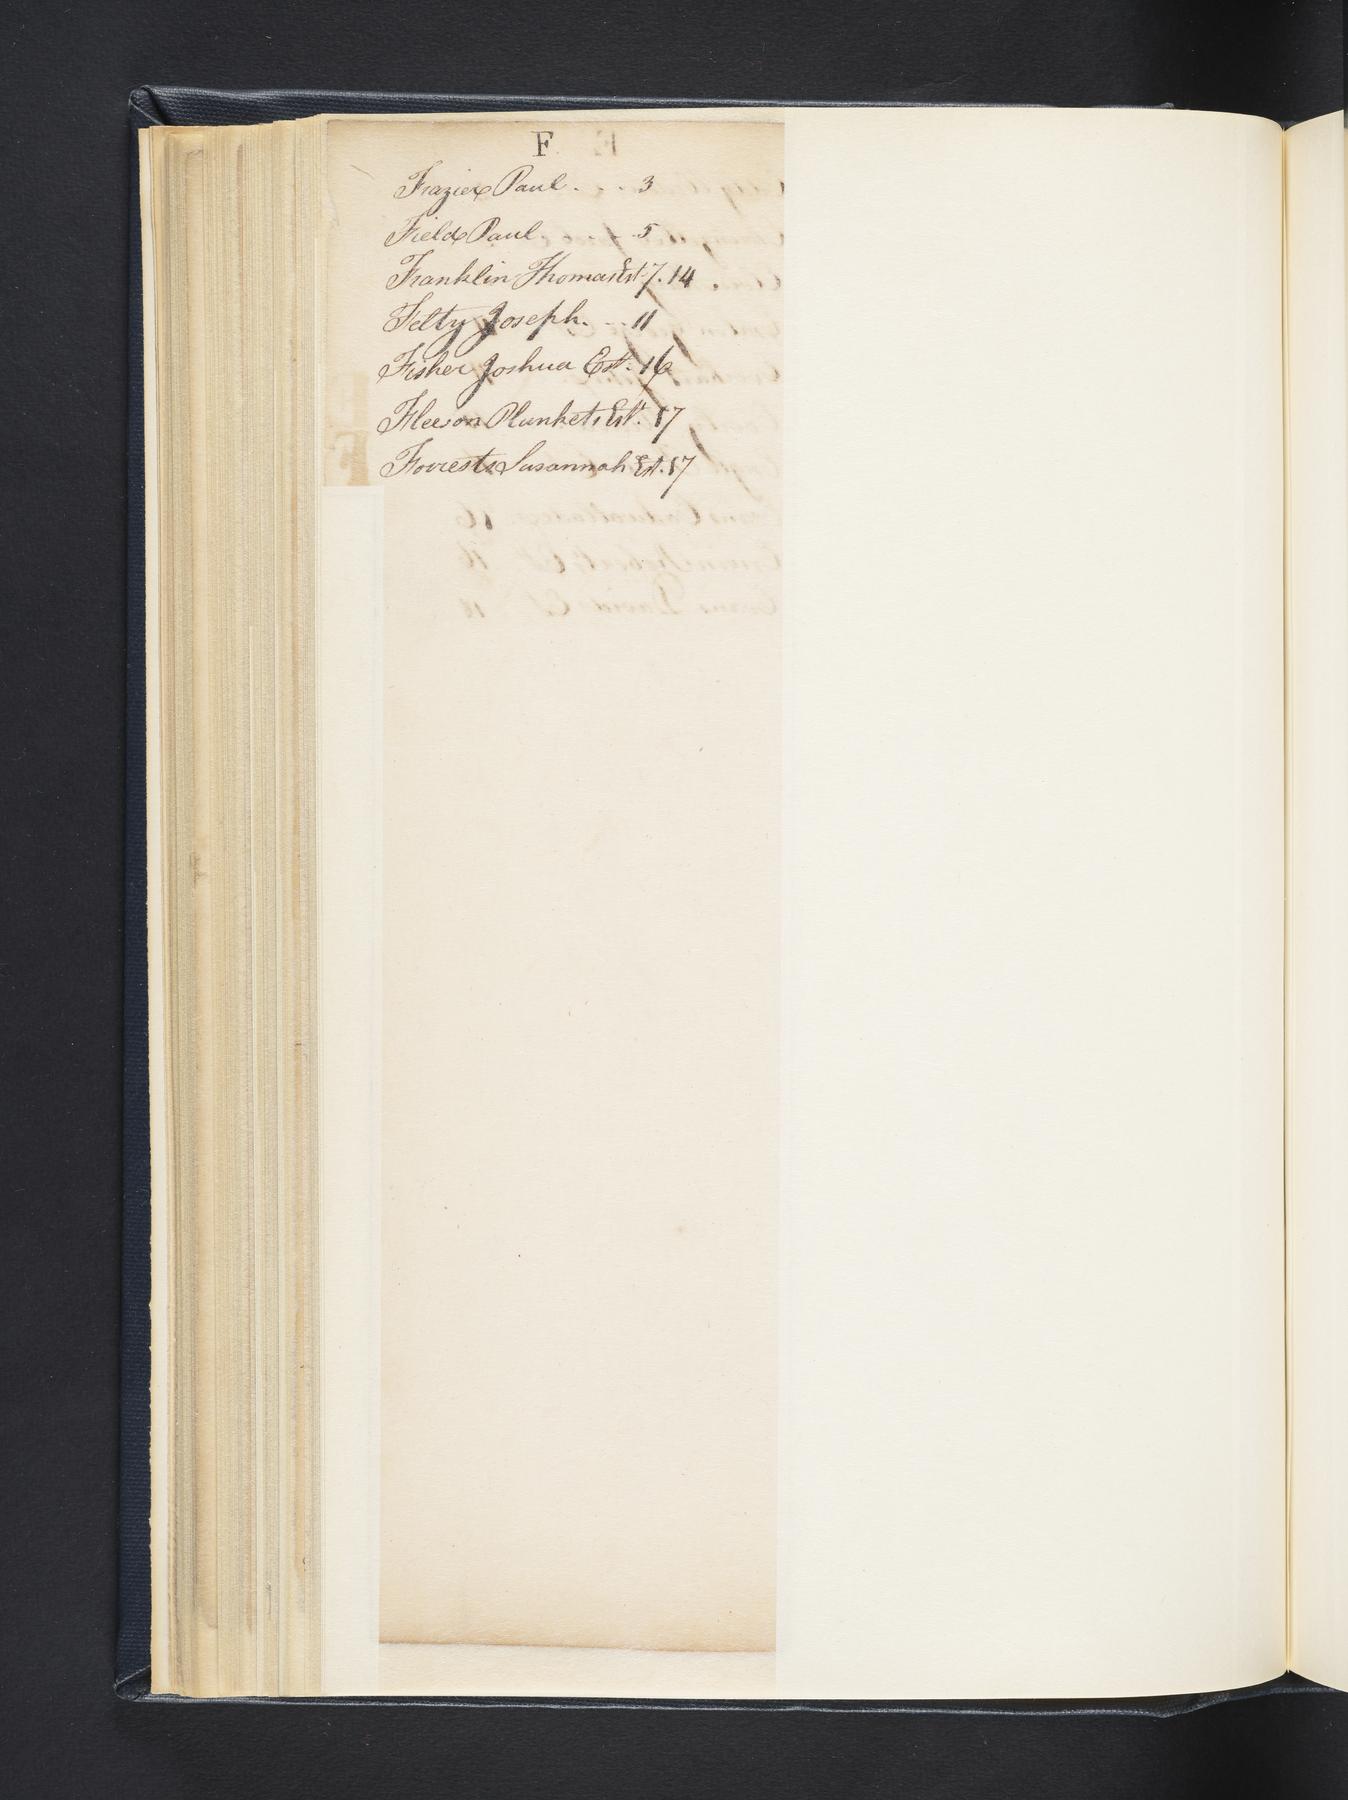 F
Frazier Paul . . . 3
Field Paul . . 5
Franklin Thomas Est. 7. 14
Felty Joseph. . . 11
Fisher Joshua Est. 16
Fleeson Plunkets Est. 17
Forrests Susannah Est. 17